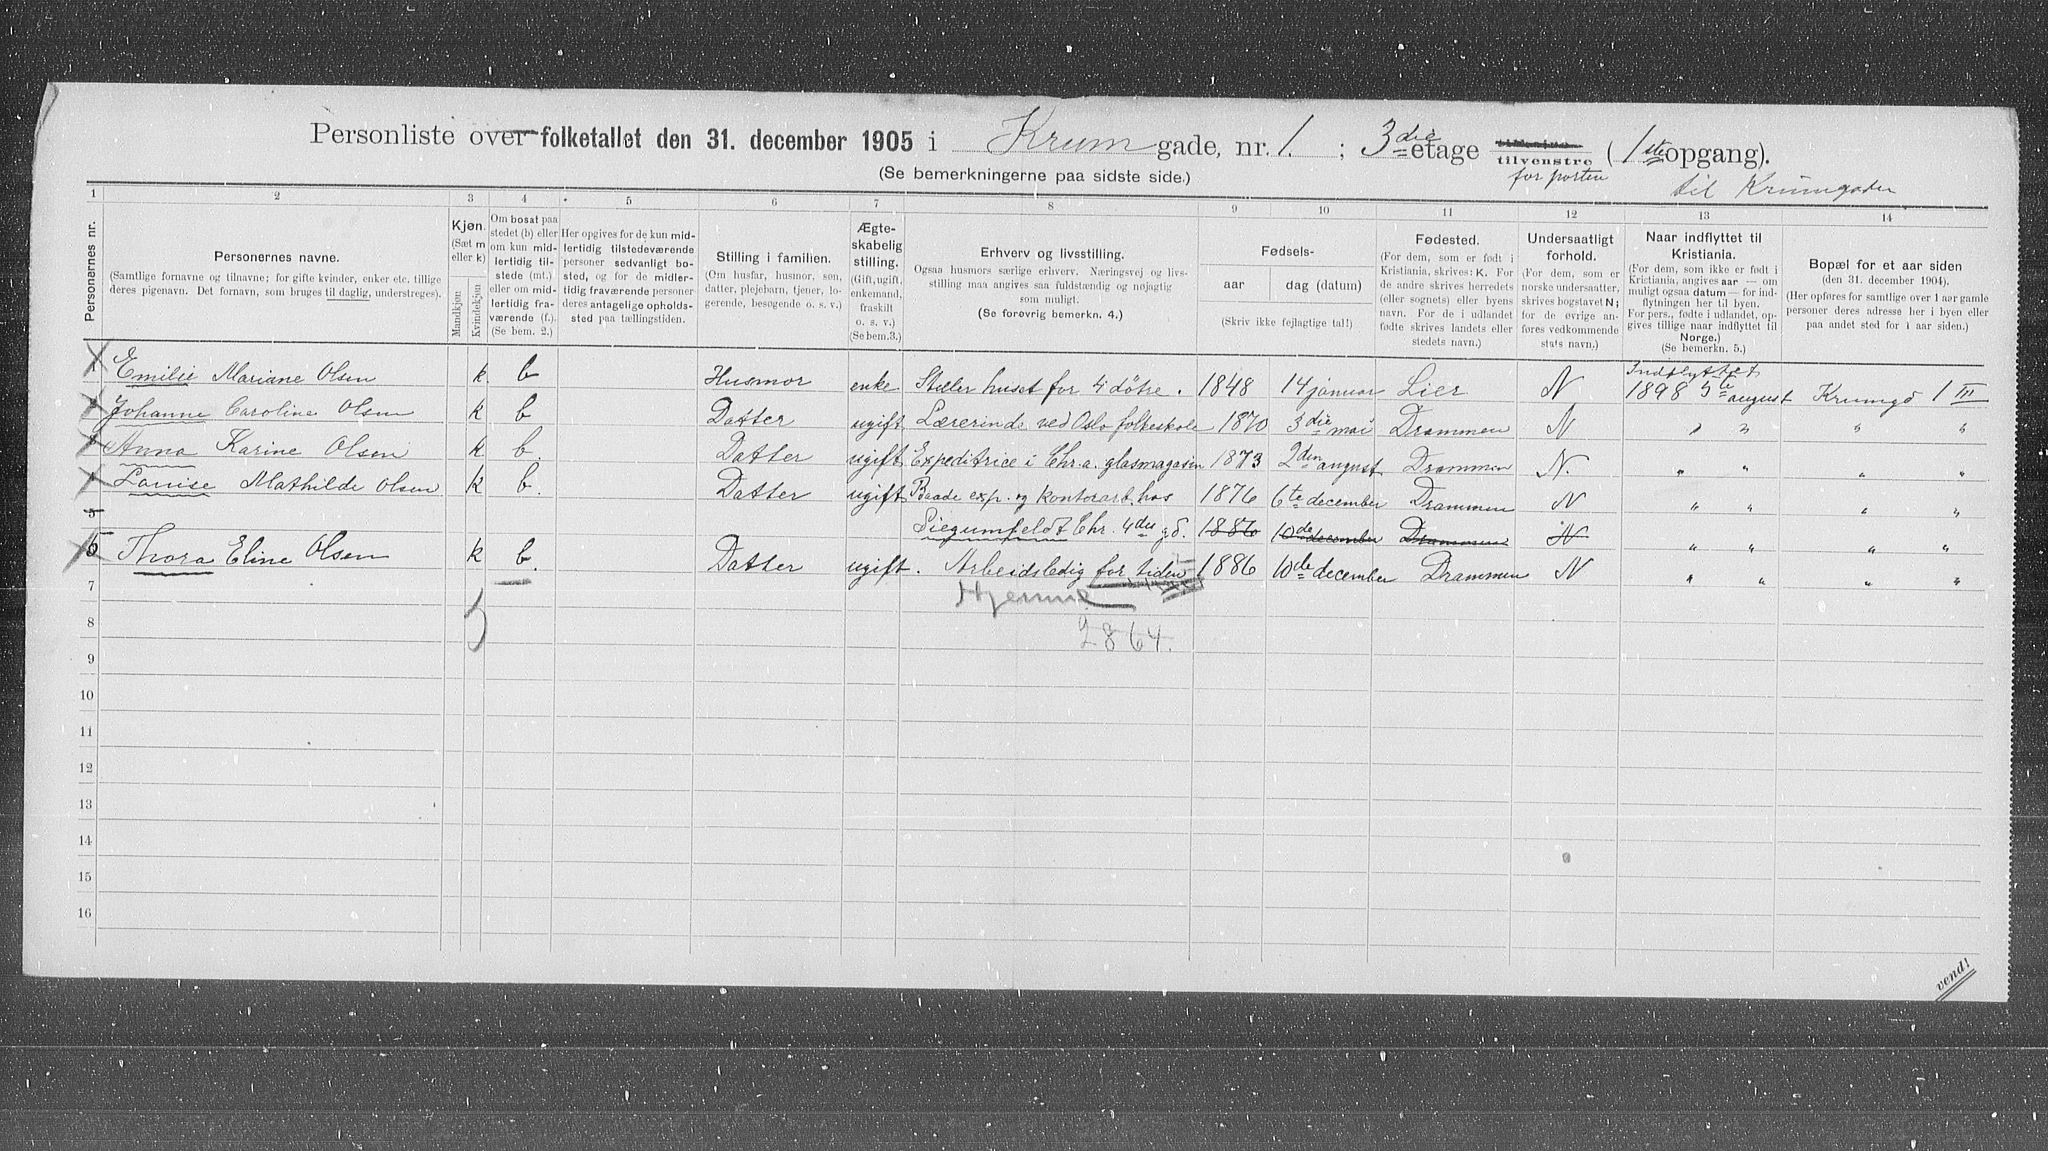 Personliste over folketallet den 31. december 1905 i Krum gade, nr. 1. ; 3die etage tilvenstre (1ste opgang).
for porten
til Krumgaden
(Se bemerkningerne paa sidste side.)
1 2 3 4 5 6 7 8 9 10 11 12 13 14
Personernes nr.
Personernes navne.
(Samtlige fornavne og tilnavne; for gifte kvinder, enker etc. tillige
deres pigenavn. Det fornavn, som bruges til daglig, understreges).
Kjøn.
(Sæt m
eller k)
Mandkjøn
Kvindekjøn
Om bosat paa
stedet (b) eller
om kun mid-
lertidig til-
stede (mt.)
eller om mid-
lertidig fra-
værende (f.).
(Se bem. 2.)
Her opgives for de kun mid-
lertidig tilstedeværende
personer sedvanlig bo-
sted, og for de midler-
tidig fraværende personer
deres antagelige opholds-
sted paa tællingstiden.
Stilling i familien.
(Om husfar, husmor, søn,
datter, plejebarn, tjener, lo-
gerende, besøgende o. s. v.)
Ægte-
skabelig
stilling.
(Gift, ugift,
enkemand,
fraskilt
o. s. v.)
(Se bem.3.)
Erhverv og livsstilling.
Ogsaa husmors særlige erhverv. Næringsvej og livs-
stilling maa angives saa fuldstændig og nøjagtig
som muligt.
(Se forøvrig bemerkn. 4.)
Fødsels-
aar
dag (datum)
(Skriv ikke fejlagtige tal!)
Fødested.
(For dem, som er født i
Kristiania, skrives: K. For
de andre skrives herredets
(eller sognets) eller byens
navn. For de i udlandet
fødte skrives landets eller
stedets navn.)
Undersaatligt
forhold.
(For dem, som er
norske undersaatter,
skrives bogstavet N;
for de øvrige an-
føres vedkommende
stats navn.)
Naar indflyttet til
Kristiania.
(For dem, som ikke er født i
Kristiania, angives aar — om
muligt ogsaa datum — for ind-
flytningen her til byen.
For pers., fødte i udlandet, op-
gives tillige naar indflyttet til
Norge.)
(Se bemerkn. 5.)
Bopæl for et aar siden
(den 31. december 1904).
(Her opføres for samtlige over 1 aar gamle
personer deres adresse her i byen eller
paa andet sted for 1 aar siden.)
1 Emilie Mariane Olsen k. b Husmor enke Steller huset for 4 døtre. 1848 14 januar Lier N Indflyttet 1898 5te august Krumgd 1 III
2 Johanne Caroline Olsen k b Datter ugift Lærerinde ved Oslo folkeskole 1870 3die mai Drammen N " " " "
3 Anna Karine Olsen k b. Datter ugift Expeditrice i Chr.a. glasmagasin 1873 2den august Drammen N. " " " "
4 Louise Mathilde Olsen k b. Datter ugift Baade exp. og kontorarb. hos 1876 6te december Drammen N " " " "
5 Siegumfeldt Chr. 4des gd. 1886 10de december Drammen N " " " "
5 Thora Eline Olsen k b. Datter ugift. Arbeidsledig for tiden 1886 10de december Drammen N " " " "
7 Hjemme
8 5 2864.
9
10
11
12
13
14
15
16
vend!